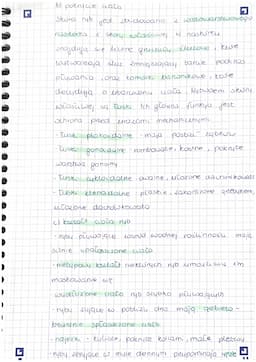 b) pokrycie ciała
Skóra ryb jest zbudowana z wielowarstwowego
naskórka i skóry właściwej. W naskórku
znajdują się liczne gruczoły śluzowe, które
wytwarzają śluz zmniejszający tarcie podczas
pływania oraz komórki barwnikowe, które
decydują o ubarwieniu ciała. Wytworem skóry
właściwej są łuski. Ich główną funkcją jest
ochrona przed urazami mechanicznymi.
- łuski plakoidalne - mają postać ząbków
- łuski ganoidalne - romboidalne, kostne, pokryte
warstwą ganoiny
- łuski cykloidalne - owalne, ułożone dachówkowato
- łuski ktenoidalne - płaskie, zakończone grzebykiem,
ułożone dachówkowato
c) kształt ciała ryb
- ryby pływające wśród wodnej roślinności mają
silnie spłaszczone ciało
- nietypowy kształt niektórych ryb umożliwia im
maskowanie się
- wydłużone ciało ryb szybko pływających
- ryby żyjące w pobliżu dna mają grzbieto-
brzusznie spłaszczone ciało
- najeżka - kuliste, pokryte kolcami, małe płetwy
- ryby żyjące w mule dennym przypominają